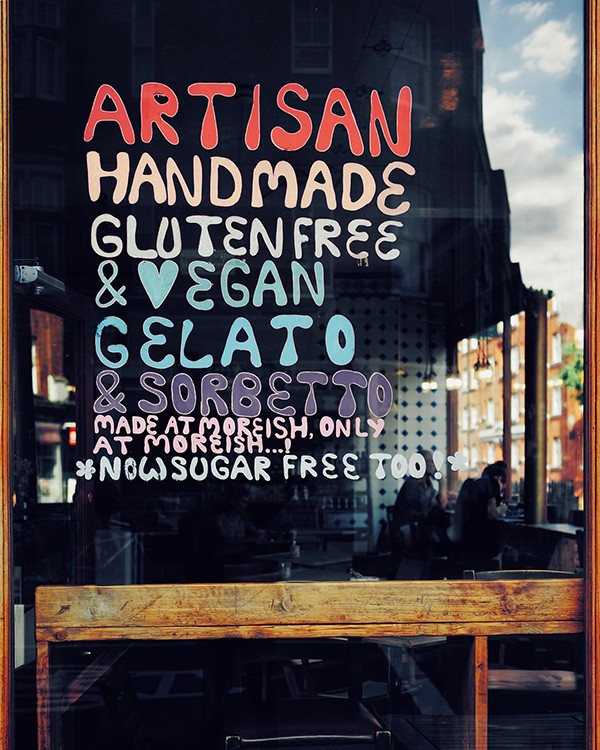 ARTISAN
HANDMADE
GLUTEN FREE
& ♥EGAN
GELATO
& SORBETTO
MADE AT MOREISH, ONLY
AT MOREISH...!
*NOW SUGAR FREE TOO!*